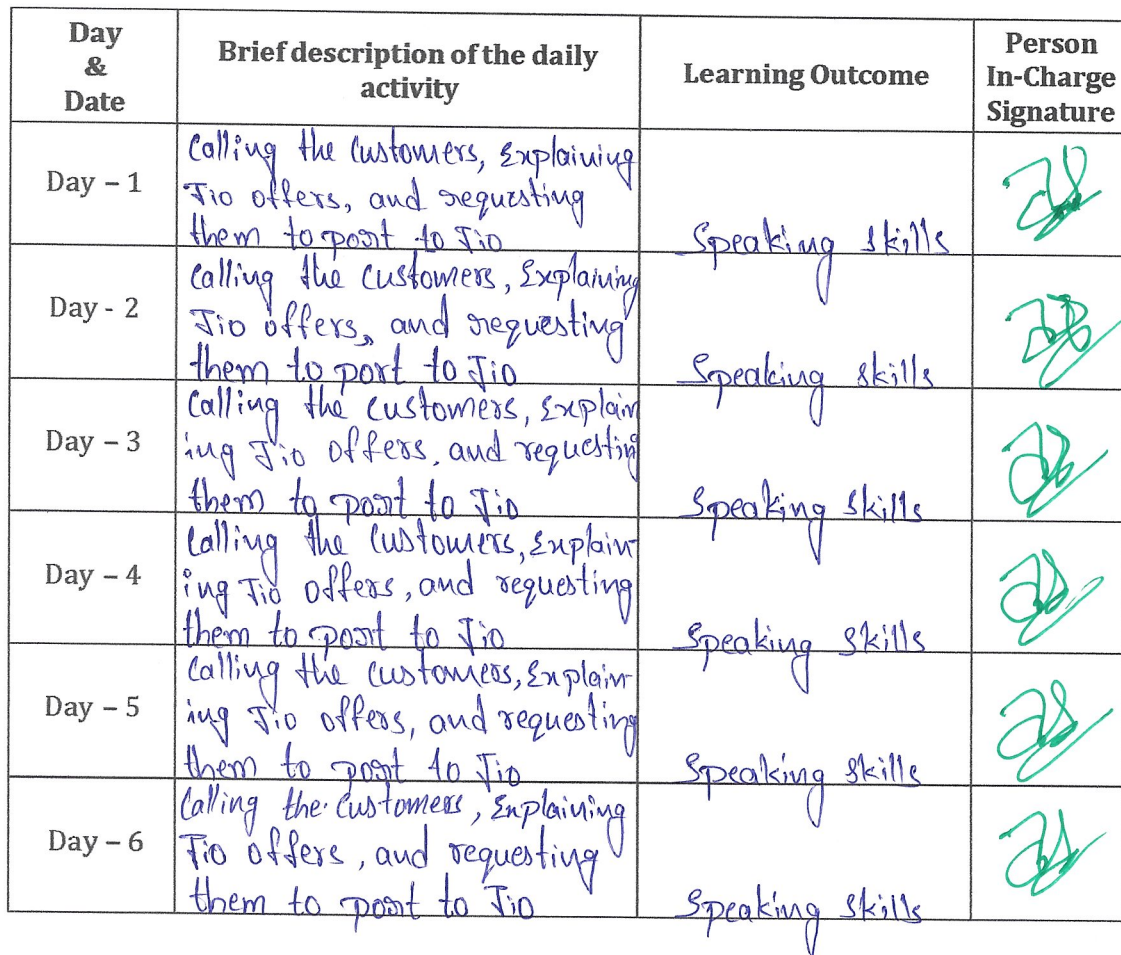 Day & Date
Brief description of the daily activity
Learning Outcome
Person In-Charge Signature
Day – 1
Calling the Customers, Explaining
Jio offers, and requesting
them to port to Jio
Speaking skills
Day - 2
Calling the Customers, Explaining
Jio offers, and requesting
them to port to Jio
Speaking skills
Day – 3
Calling the Customers, Explain
ing Jio offers, and requesting
them to port to Jio
Speaking skills
Day – 4
Calling the Customers, Explain-
ing Jio offers, and requesting
them to port to Jio
Speaking skills
Day – 5
Calling the Customers, Explain-
ing Jio offers, and requesting
them to port to Jio
Speaking skills
Day – 6
Calling the Customers, Explaining
Jio offers, and requesting
them to port to Jio
Speaking skills